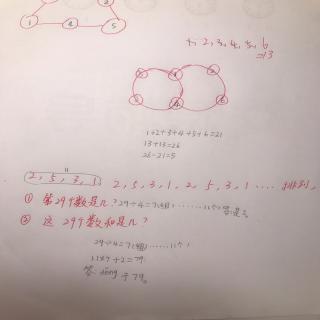 1 4 5
1, 2, 3, 4, 5, 6
=13
1+2+3+4+5+6=21
13+13=26
26-21=5
11
2, 5, 3, 1, 2, 5, 3, 1, 2, 5, 3, 1 ···· 排列,
① 第29个数是几? 29÷4=7(组)······1(个) 答:是2
② 这29个数和是几?
29÷4=7(组)······1(个)
11×7+2=79
答: děng 于79。